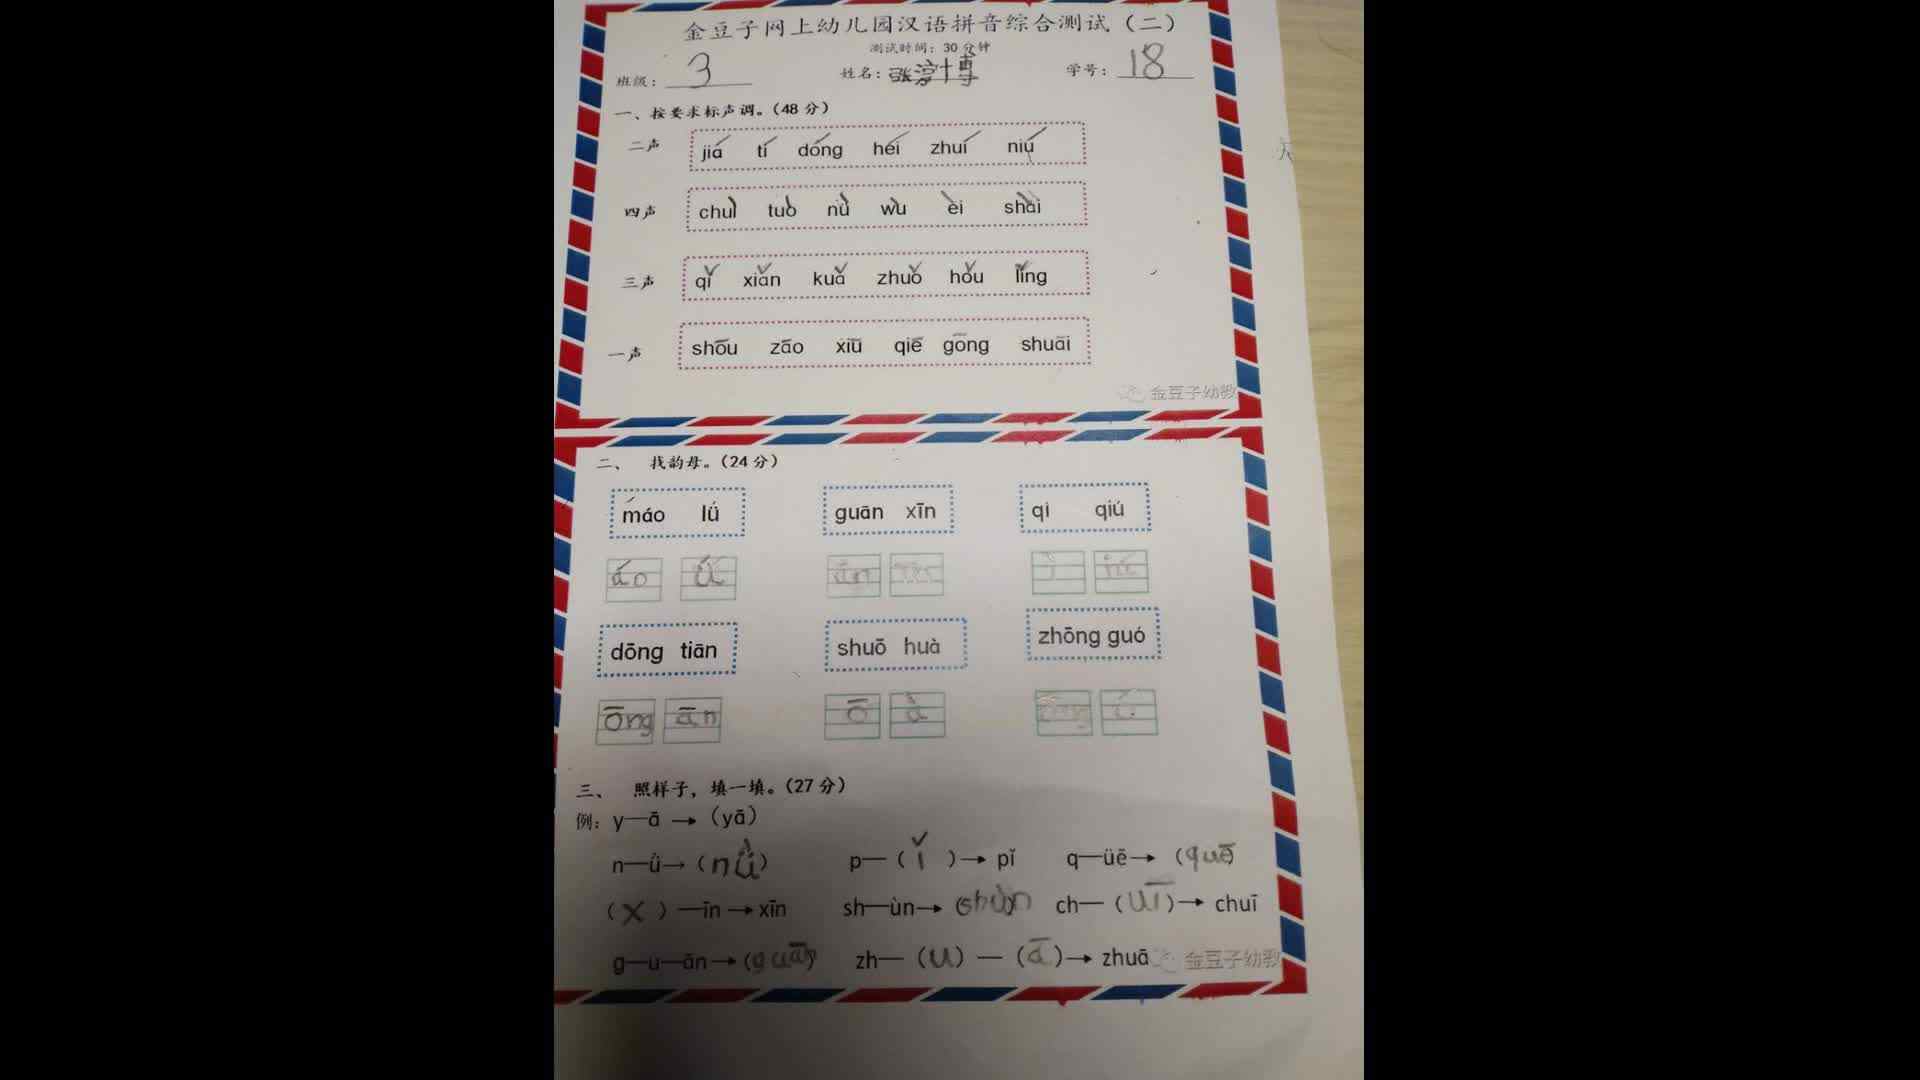 金豆子网上幼儿园汉语拼音综合测试（二）
测试时间：30 分钟
班级：3 姓名：张淳博 学号：18
一、按要求标声调。（48 分）
二声 jiá tí dóng héi zhuí niú
四声 chuì tuò nǜ wù èi shài
三声 qǐ xiǎn kuǎ zhuǒ hǒu lǐng
一声 shōu zāo xiū qiē gōng shuāi
金豆子幼教
二、 找韵母。（24 分）
máo lǘ guān xīn qì qiú
áo ǘ ān īn
dōng tiān shuō huà zhōng guó
ōng ān ō à ōng ó
三、 照样子，填一填。（27 分）
例：y—ā → （yā）
n—ǜ→（nǜ） p—（ǐ）→ pǐ q—üē→ （quē）
（x）—īn → xīn sh—ùn→（shùn） ch—（uī）→ chuī
g—u—ān→（guān） zh—（u）—（ā）→ zhuā
金豆子幼教